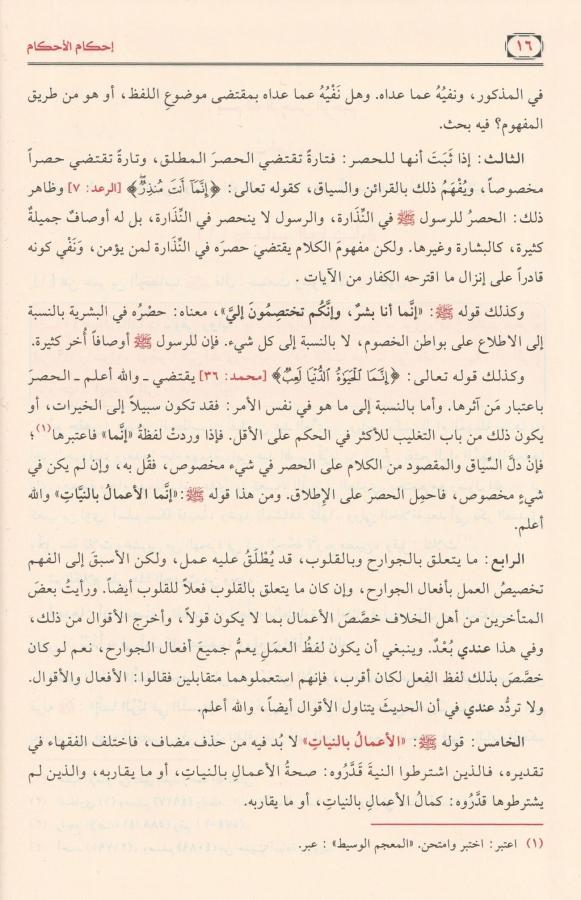 ١٦
إحكام الأحكام
في المذكور، ونفيُهُ عما عداه. وهل نَفْيُهُ عما عداه بمقتضى موضوعِ اللفظ، أو هو من طريق
المفهوم؟ فيه بحث.
الثالث: إذا ثَبَتَ أنها للحصر: فتارةً تقتضي الحصرَ المطلق، وتارةً تقتضي حصراً
مخصوصاً، ويُفْهَمُ ذلك بالقرائن والسياق، كقوله تعالى: ﴿إِنَّمَآ أَنتَ مُنذِرٌ﴾ [الرعد: ٧] وظاهر
ذلك: الحصرُ للرسول ﷺ في النِّذارة، والرسول لا ينحصر في النِّذارة، بل له أوصافٌ جميلةٌ
كثيرة، كالبشارة وغيرها. ولكن مفهومَ الكلام يقتضيَ حصرَه في النِّذارة لمن يؤمن، ونَفْي كونه
قادراً على إنزال ما اقترحه الكفار من الآيات.
وكذلك قوله ﷺ: «إنَّما أنا بشرٌ، وإنَّكم تختصِمُونَ إليَّ»، معناه: حصْرُه في البشرية بالنسبة
إلى الاطلاع على بواطن الخصوم، لا بالنسبة إلى كل شيء. فإن للرسول ﷺ أوصافاً أُخر كثيرة.
وكذلك قوله تعالى: ﴿إِنَّمَا ٱلۡحَيَوٰةُ ٱلدُّنۡيَا لَعِبٌ﴾ [محمد: ٣٦] يقتضي ـ والله أعلم ـ الحصرَ
باعتبار مَن آثرها. وأما بالنسبة إلى ما هو في نفس الأمر: فقد تكون سبيلاً إلى الخيرات، أو
يكون ذلك من باب التغليب للأكثر في الحكم على الأقل. فإذا وردتْ لفظةُ «إنَّما» فاعتبرها(١)؛
فإنْ دلَّ السِّياق والمقصود من الكلام على الحصر في شيء مخصوص، فقُل به، وإن لم يكن في
شيءٍ مخصوص، فاحمِل الحصرَ على الإطلاق. ومن هذا قوله ﷺ: «إنَّما الأعمالُ بالنيَّاتِ» والله
أعلم.
الرابع: ما يتعلق بالجوارح وبالقلوب، قد يُطْلَقُ عليه عمل، ولكن الأسبقَ إلى الفهم
تخصيصُ العمل بأفعال الجوارح، وإن كان ما يتعلق بالقلوب فعلاً للقلوب أيضاً. ورأيتُ بعضَ
المتأخرين من أهل الخلاف خصَّصَ الأعمال بما لا يكون قولاً، وأخرج الأقوال من ذلك،
وفي هذا عندي بُعْدٌ. وينبغي أن يكون لفظُ العمَلِ يعمُّ جميعَ أفعال الجوارح، نعم لو كان
خصَّصَ بذلك لفظ الفعل لكان أقرب، فإنهم استعملوهما متقابلين فقالوا: الأفعال والأقوال.
ولا تردُّد عندي في أن الحديثَ يتناول الأقوال أيضاً، والله أعلم.
الخامس: قوله ﷺ: «الأعمالُ بالنياتِ» لا بُد فيه من حذف مضاف، فاختلف الفقهاء في
تقديره، فالذين اشترطوا النيةَ قَدَّرُوه: صحةُ الأعمالِ بالنيات، أو ما يقاربه، والذين لم
يشترطوها قدَّروه: كمالُ الأعمالِ بالنيات، أو ما يقاربه.
(١) اعتبر: اختبر وامتحن. «المعجم الوسيط»: عبر.